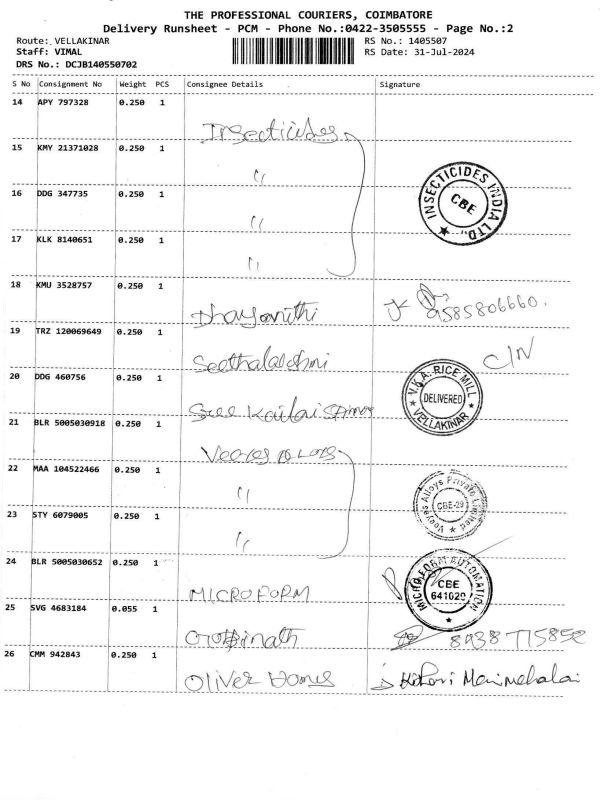 THE PROFESSIONAL COURIERS, COIMBATORE
Delivery Runsheet - PCM - Phone No.:0422-3505555 - Page No.:2
Route: VELLAKINAR RS No.: 1405507
Staff: VIMAL RS Date: 31-Jul-2024
DRS No.: DCJB140550702
S No Consignment No Weight PCS Consignee Details Signature
14 APY 797328 0.250 1
Insecticides
15 KMY 21371028 0.250 1
"
INSECTICIDES INDIA LTD. CBE
16 DDG 347735 0.250 1
"
17 KLK 8140651 0.250 1
"
18 KMU 3528757 0.250 1
Dhayanithi 9585806660.
19 TRZ 120069649 0.250 1
Seethalakshmi C/N
20 DDG 460756 0.250 1
V.K.A. RICE MILL DELIVERED VELLAKINAR
Sree Kailai
21 BLR 5005030918 0.250 1
22 MAA 104522466 0.250 1
"
Veeyes Alloys Private Limited CBE-29
23 STY 6079005 0.250 1
"
24 BLR 5005030652 0.250 1
MICROFORM AUTOMATION CBE 641029
MICROFORM
25 SVG 4683184 0.055 1
8438 715852
26 CMM 942843 0.250 1
Oliver Homes